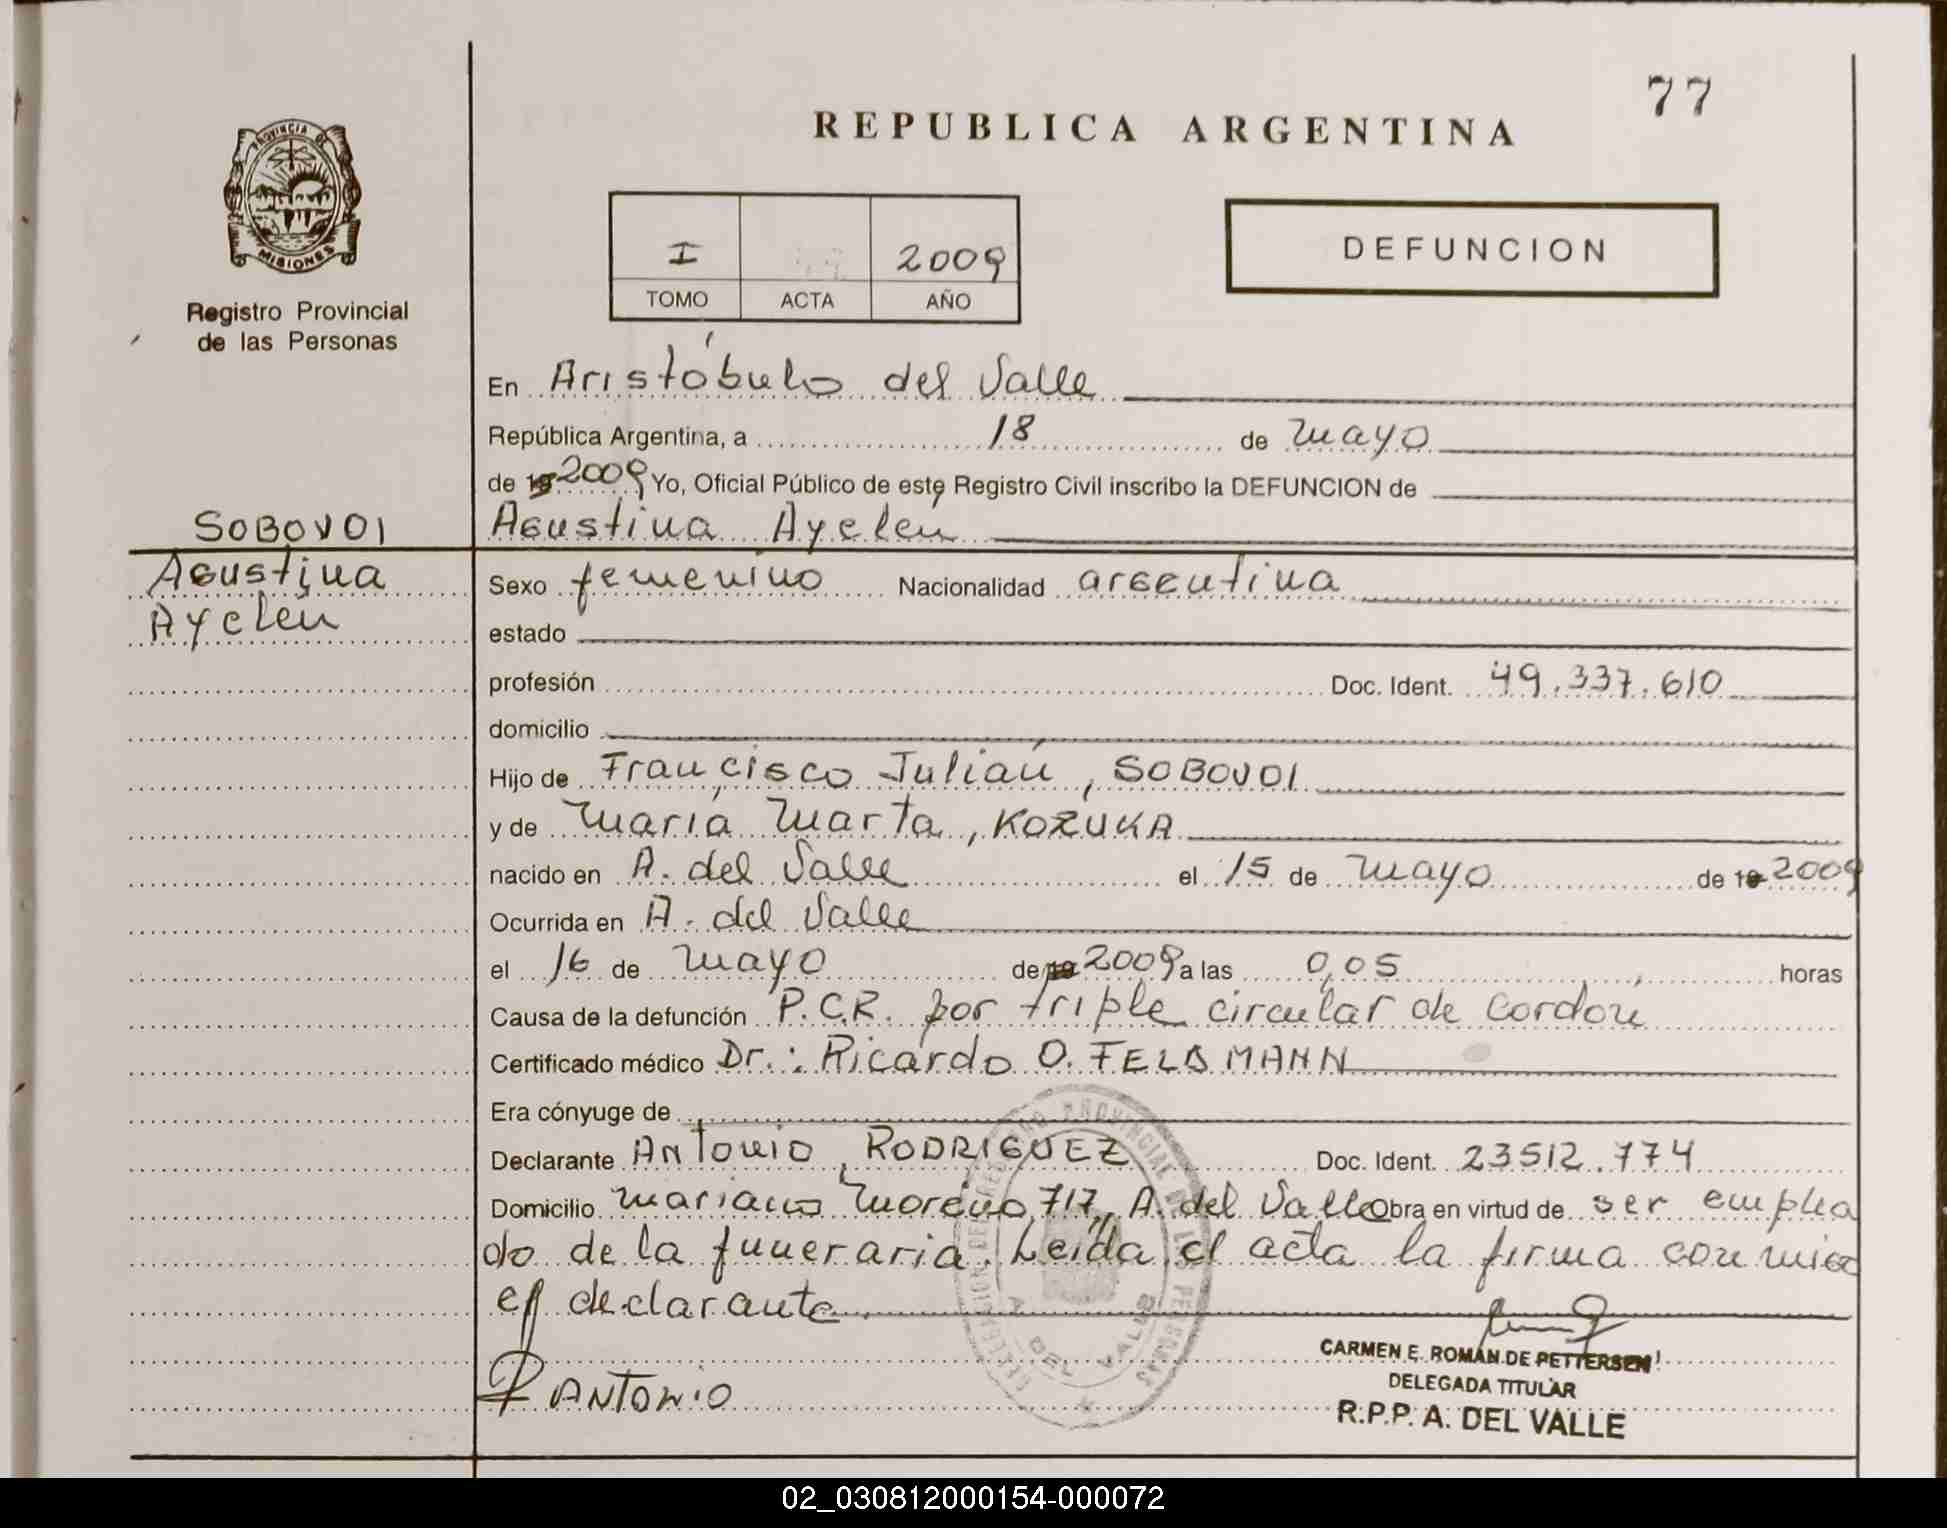 77
REPUBLICA ARGENTINA
PROVINCIA DE
MISIONES
Registro Provincial
de las Personas
I 2009
TOMO ACTA AÑO
DEFUNCION
En Aristóbulo del Valle
República Argentina, a 18 de mayo
de 19 2009 Yo, Oficial Público de este Registro Civil inscribo la DEFUNCION de
SOBOVOI
Agustina Ayelén
Agustina
Ayelén
Sexo femenino Nacionalidad argentina
estado
profesión Doc. Ident. 49.337.610
domicilio
Hijo de Francisco Julián, SOBOVOI
y de María Marta, KOZUKA
nacido en A. del Valle el 15 de mayo de 19 2009
Ocurrida en A. del Valle
el 16 de mayo de 19 2009 a las 0,05 horas
Causa de la defunción P.C.R. por triple circular de cordon
Certificado médico Dr.: Ricardo O. FELDMANN
Era cónyuge de
Declarante Antonio, RODRIGUEZ Doc. Ident. 23512.774
Domicilio Mariano Moreno 717, A. del Valle Obra en virtud de ser emplea
do de la funeraria. Leída el acta la firma conmigo
el declarante.
DELEGACION DE REGISTRO PROVINCIAL DE LAS PERSONAS
A. DEL VALLE
R ANTONIO
CARMEN E. ROMAN DE PETTERSEN
DELEGADA TITULAR
R.P.P. A. DEL VALLE
02_030812000154-000072